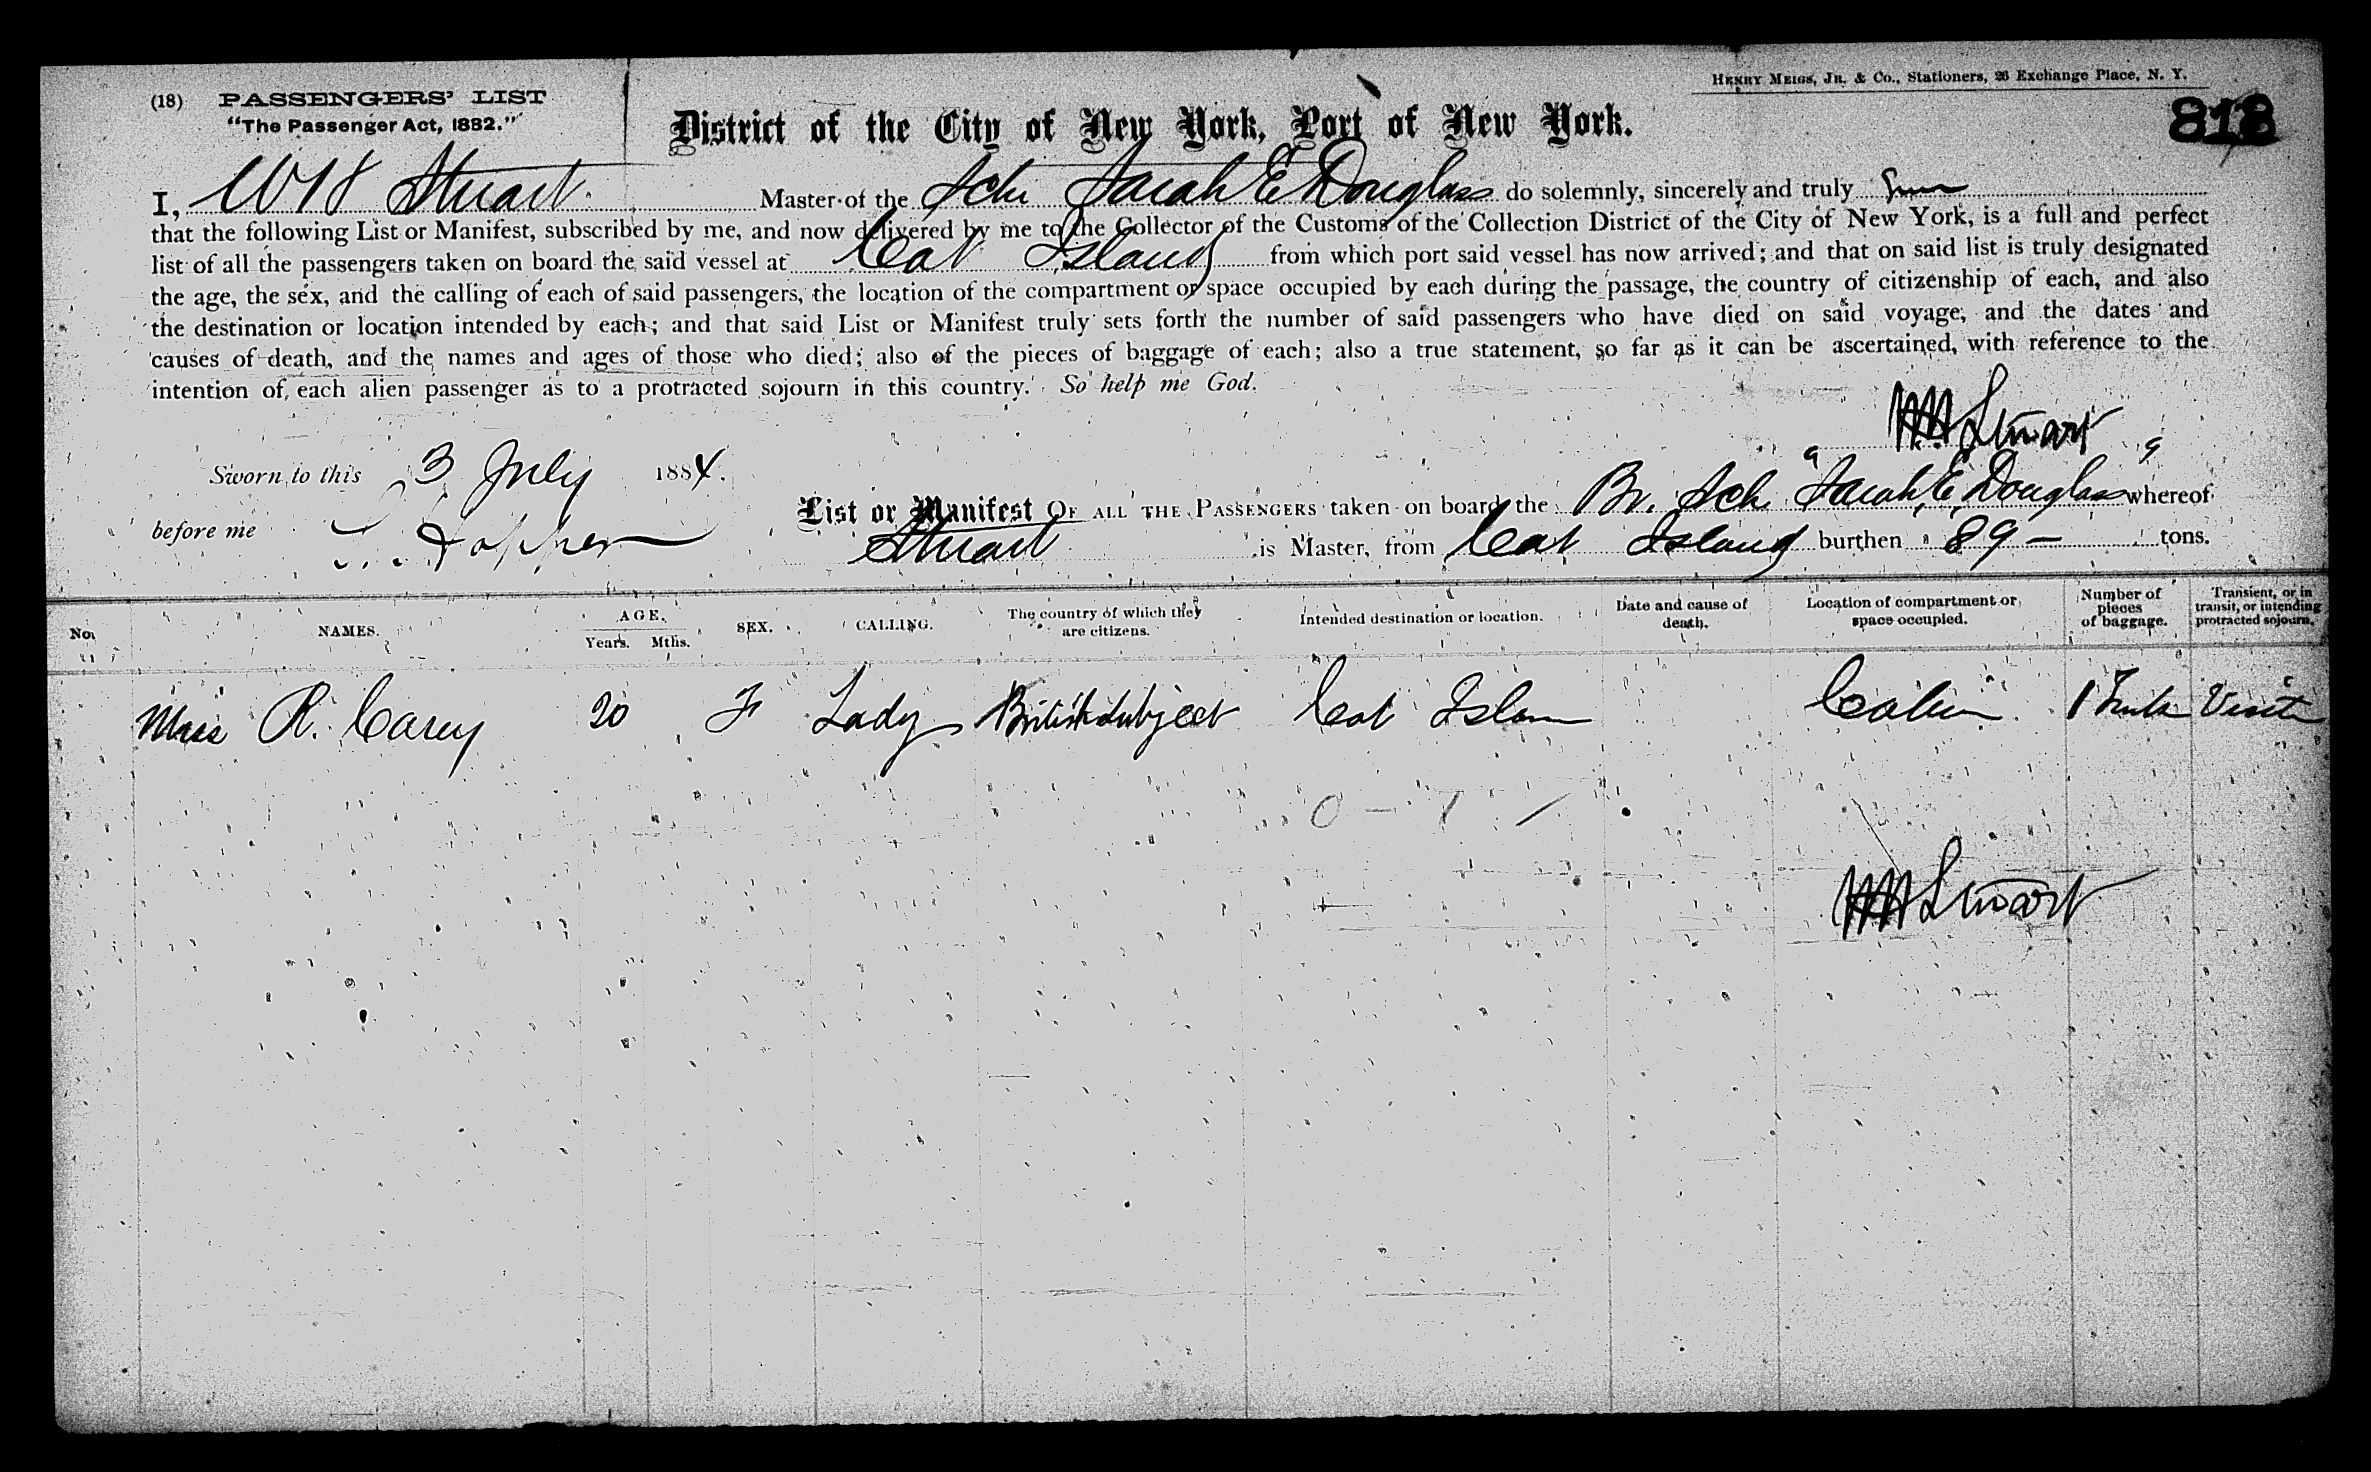 HENRY MEIGS, JR. & Co., Stationers, 26 Exchange Place, N. Y.
(18) PASSENGERS' LIST
"The Passenger Act, 1882."
District of the City of New York, Port of New York.
818
I, W H Stuart Master of the Schr Sarah E Douglass do solemnly, sincerely and truly
that the following List or Manifest, subscribed by me, and now delivered by me to the Collector of the Customs of the Collection District of the City of New York, is a full and perfect
list of all the passengers taken on board the said vessel at Cat Island from which port said vessel has now arrived; and that on said list is truly designated
the age, the sex, and the calling of each of said passengers, the location of the compartment or space occupied by each during the passage, the country of citizenship of each, and also
the destination or location intended by each; and that said List or Manifest truly sets forth the number of said passengers who have died on said voyage, and the dates and
causes of death, and the names and ages of those who died; also of the pieces of baggage of each; also a true statement, so far as it can be ascertained, with reference to the
intention of each alien passenger as to a protracted sojourn in this country. So help me God.
WH Stuart
Sworn to this 3 July 1884.
before me
List or Manifest OF ALL THE PASSENGERS taken on board the Br. Sch "Sarah E Douglass" whereof
Stuart is Master, from Cat Island burthen 89 — tons.
No. NAMES. AGE. Years. Mths. SEX. CALLING. The country of which they are citizens. Intended destination or location. Date and cause of death. Location of compartment or space occupied. Number of pieces of baggage. Transient, or in transit, or intending protracted sojourn.
Miss R. Carey 20 F Lady British Subject Cat Islan Cabin 1 Trunk Visit
0 - 1 /
WH Stuart